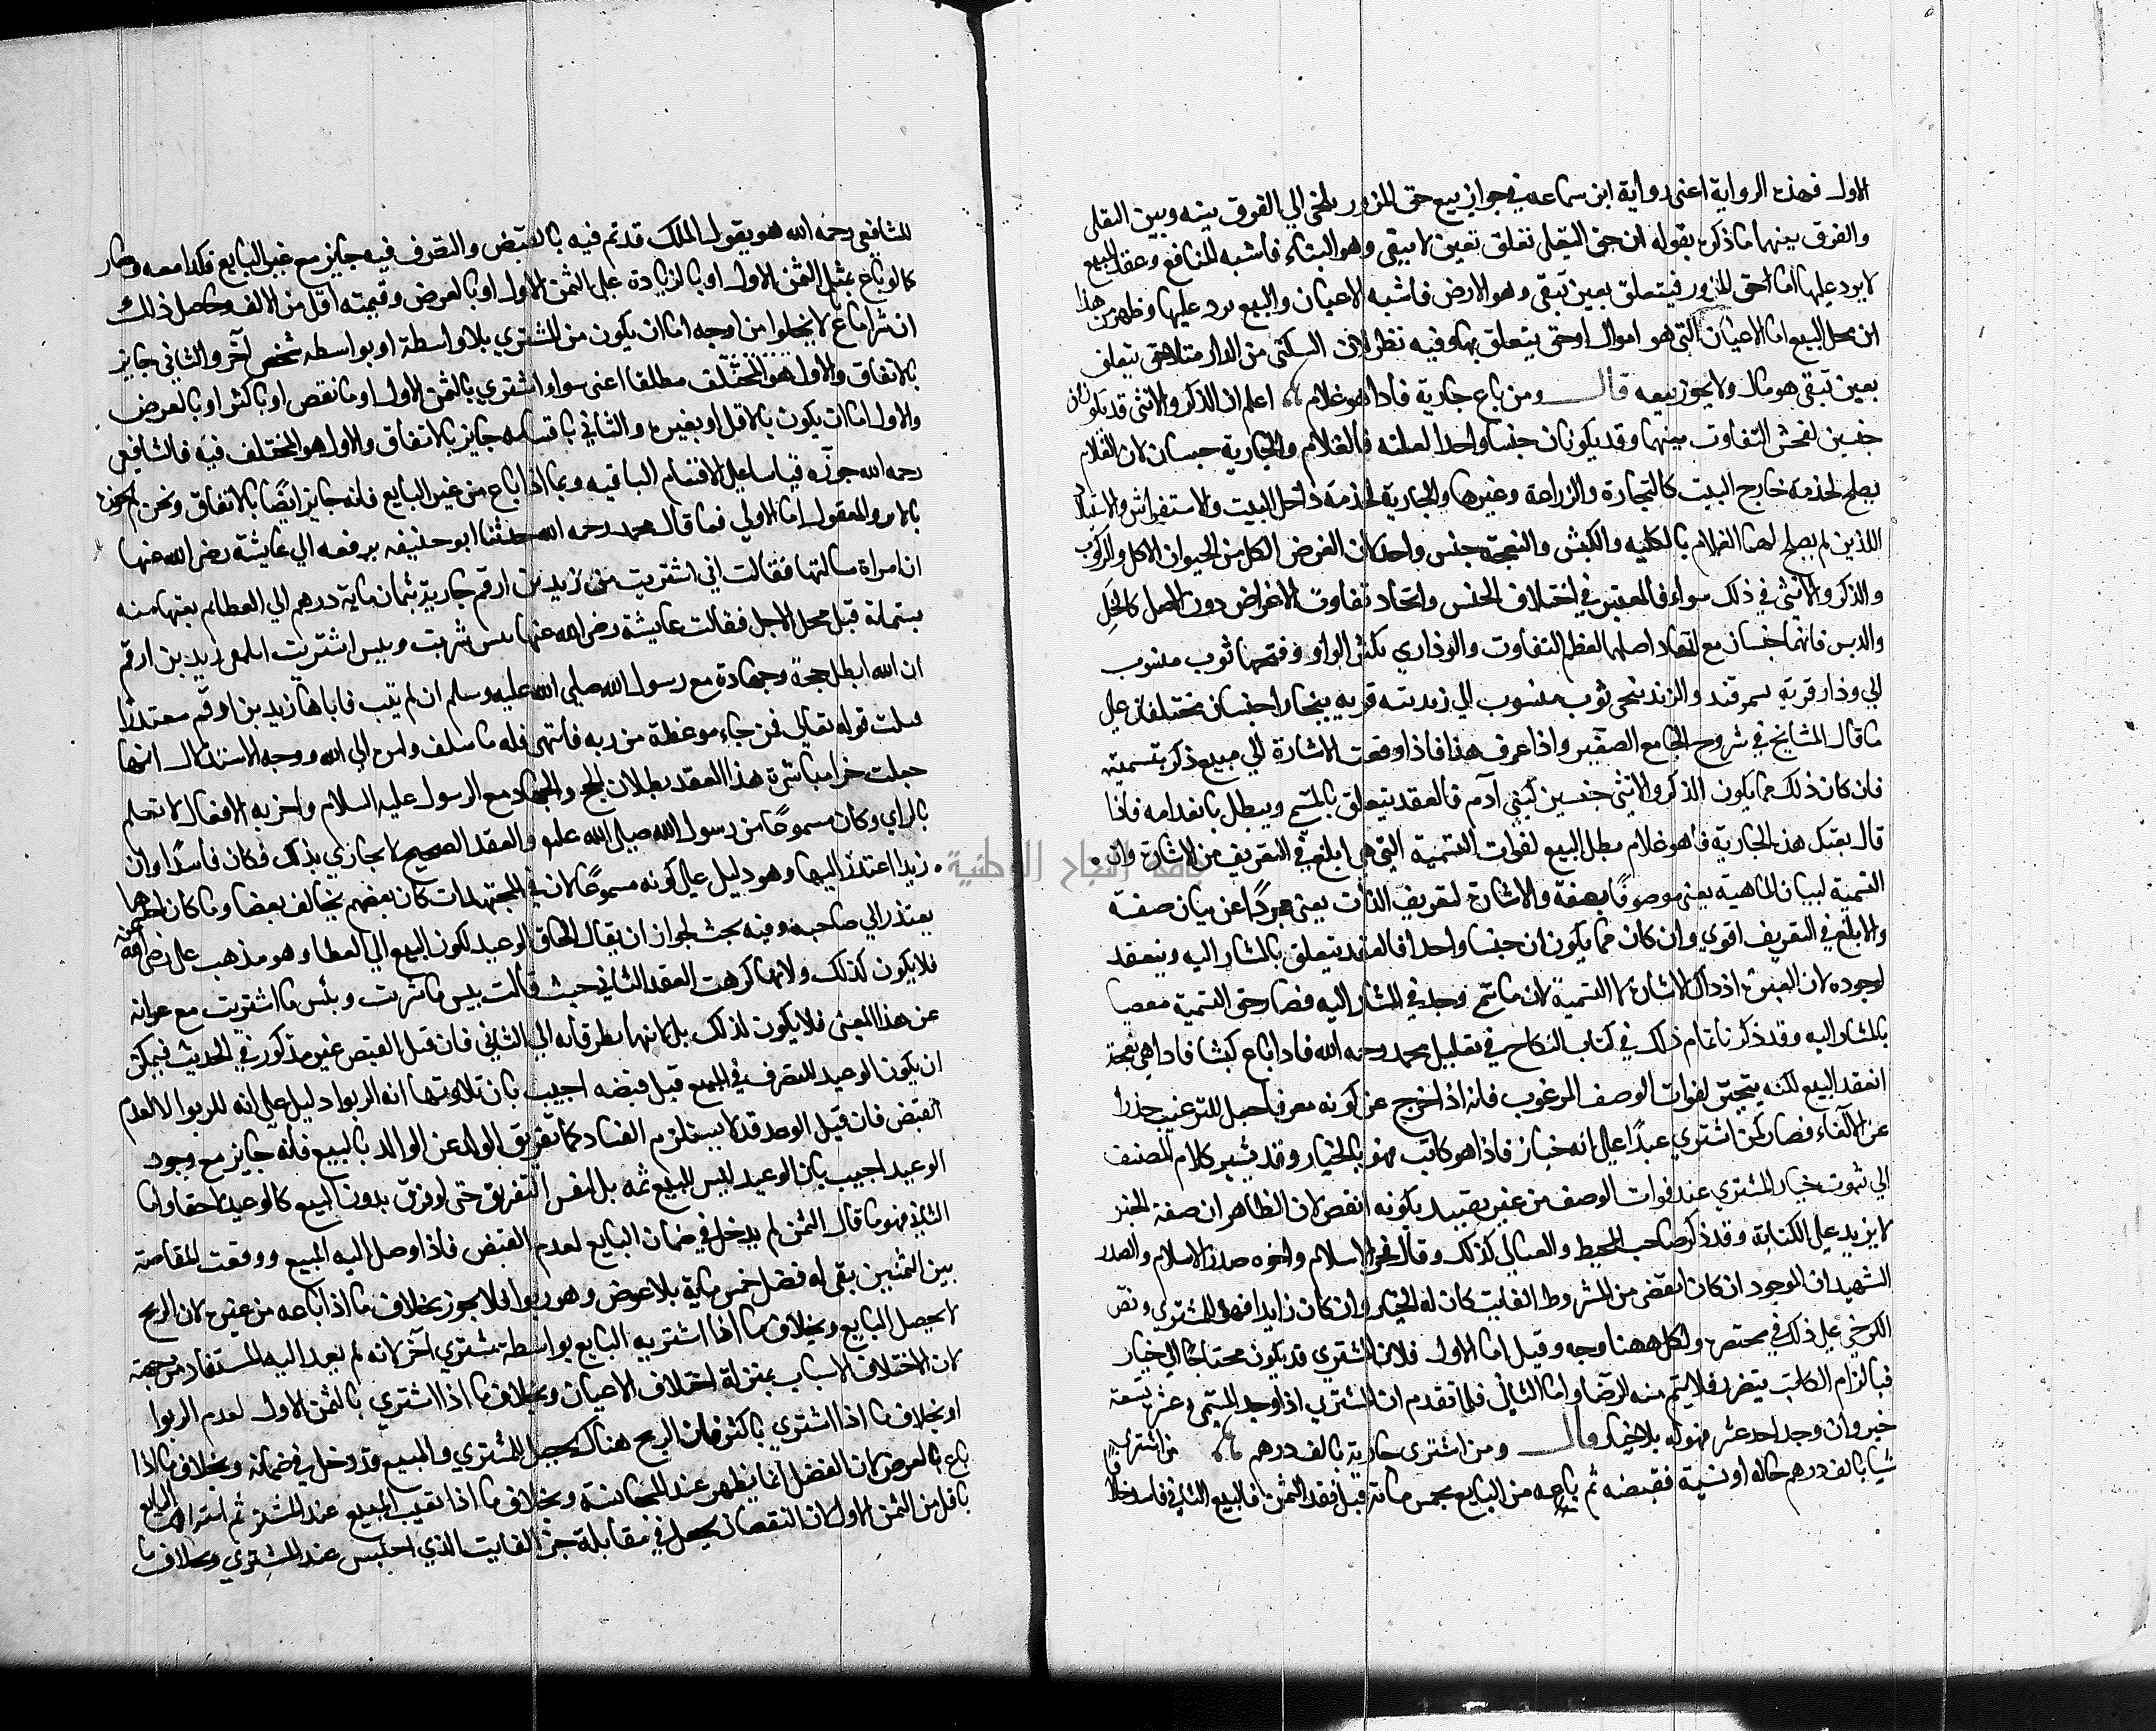 الاول فهذه الرواية اعنى رواية ابن سماعه في جواز بيع حق المرور يلجى الي الفرق بينه وبين التعلى
والفرق بينهما ما ذكره بقوله ان حق التعلى تعلق بعين لا يبقى وهو البناء فاشبه المنافع وعقد البيع
لا يرد عليها اما حق المرور فيتعلق بعين تبقى وهو الارض فاشبه الاعيان والبيع يرد عليها وظهر من هذا
ان محل البيع اما الاعيان التى هو اموال او حق يتعلق بها وفيه نظر لان السكنى من الدار مثلا حق يتعلق
بعين تبقى هو مال ولا يجوز بيعه قال ومن باع جارية فاذا هو غلام اعلم ان الذكر والانثى قد يكونان
جنسين لفحش التفاوت بينهما وقد يكونان جنسا واحدا لقلته فالغلام والجارية جنسان لان الغلام
يصلح لخدمة خارج البيت كالتجارة والزراعة وغيرها والجارية لخدمة داخل البيت والاستفراش والاستيلاد
اللذين لم يصلح لهما الغلام بالكليه والكبش والنعجة جنس واحد لان الغرض الكل من الحيوان الاكل والركوب
والذكر والانثى في ذلك سواء فالمعتبر في اختلاف الجنس واتحاده تفاوت الاغراض دون الاصل كالخل
والدبس فانهما جنسان مع اتحاد اصلهما لعظم التفاوت والوذاري بكسر الواو وفتحها ثوب منسوب
الي وذار قرية بسمرقند والزندنيجى ثوب منسوب الي زندنه قريه ببخارا جنسان مختلفان على
ما قال المشايخ في شروح الجامع الصغير واذا عرف هذا فاذا وقعت الاشارة الي مبيع ذكر بتسميته
فان كان ذلك مما يكون الذكر والانثى جنسين كبني آدم فالعقد يتعلق بالمسمى ويبطل بانعدامه فاذا
قال بعتك هذه الجارية فاذا هو غلام بطل البيع لفوات التسمية التي هي ابلغ في التعريف من الاشارة وان
التسمية لبيان الماهية يعنى موصوفا بصفة والاشارة لتعريف الذات يعنى مجردا عن بيان صفة
والابلغ في التعريف اقوي وان كان مما يكونان جنسا واحدا فالعقد يتعلق بالمشار اليه وينعقد
لوجوده لان العبرة اذ ذاك للاشارة لا التسمية لان ما سمى وجد في المشار اليه فصار حق التسمية مقضيا
بالمشار اليه وقد ذكرنا تمام ذلك في كتاب النكاح في تعليل محمد رحمه الله فاذا باع كبشا فاذا هي نعجة
انعقد البيع لكنه يتخير لفوات الوصف المرغوب فانه اذا خرج عن كونه معرفا حمل للترغيب حذرا
عن الالغاء فصار كمن اشتري عبدا على انه خباز فاذا هو كاتب فهو بالخيار وقد يشير كلام المصنف
الي ثبوت خيار المشتري عند فوات الوصف من غير تقييد بكونه انقص لان الظاهر ان صفة الخبز
لا يزيد على الكتابة وقد ذكر صاحب المحيط والعتابي كذلك وقال فخر الاسلام واخوه صدر الاسلام والصدر
الشهيد ان الموجود ان كان انقص من المشروط الفايت كان له الخيار وان كان زايدا فهو للمشتري ونص
الكرخي على ذلك في مختصره ولكل ههنا وجه وقيل اما الاول فلان المشتري قد يكون محتاجا الي خباز
فبالزام الكاتب يتضرر فلا يتم منه الرضا واما الثاني فلما تقدم ان المشتري اذا وجد المسمى عشر تسعة
خير وان وجد احد عشر فهو له بلا خيار قال ومن اشترى جارية بالف درهم من اشترى
شيا بالف درهم حالة او نسية فقبضه ثم باعه من البايع بخمس ماية قبل نقد الثمن فالبيع الثاني فاسد خلافا
للشافعي رحمه الله هو يقول الملك قد تم فيه بالقبض والتصرف فيه جايز مع غير البايع فكذا معه وصار
كما لو باع بمثل الثمن الاول او بالزيادة على الثمن الاول او بالعرض وقيمته اقل من الالف وحاصل ذلك
ان شرا ما باع لا يخلوا من اوجه اما ان يكون من المشتري بلا واسطة او بواسطه شخص آخر والثاني جايز
بالاتفاق والاول هو المختلف مطلقا اعنى سواء اشتري بالثمن الاول او ما نقص او باكثر او بالعرض
والاول اما ان يكون بالاقل او بغيره والثاني باقسامه جايز بالاتفاق والاول هو المختلف فيه فالشافعي
رحمه الله جوزه قياسا على الاقسام الباقيه وبما اذا باع من غير البايع فانه جايز ايضا بالاتفاق ونحن
بالاثر والمعقول اما الاولي فما قال محمد رحمه الله حدثنا ابو حنيفه يرفعه الي عايشة رضي الله عنها
ان امراة سالتها فقالت اني اشتريت من زيد بن ارقم جارية بثمان ماية درهم الي العطا ثم بعتها منه
بستماية قبل محل الاجل فقالت عايشة رضي الله عنها بيس شريت وبيس اشتريت ابلغي زيد بن ارقم
ان الله ابطل حجه وجهاده مع رسول الله صلي الله عليه وسلم ان لم يتب فاتاها زيد بن ارقم معتذرا
فتلت قوله تعالي فمن جاءه موعظة من ربه فانتهى فله ما سلف وامره الي الله ووجه الاستدلال انها
جعلت جزا مباشرة هذا العقد بطلان الحج والجهاد مع الرسول عليه السلام واجزية الافعال لا تعلم
بالراي وكان مسموعا من رسول الله صلى الله عليه والعقد الصحيح لا يجازي بذلك فكان فاسدا وان
زيدا اعتذر اليها وهو دليل على كونه مسموعا لان في المجتهدات كان بعضهم يخالف بعضا وما كان احدهما
يعتذر الي صاحبه وفيه بحث لجواز ان يقال الحاق الوعيد لكون البيع الي العطا وهو مذهب على رضي الله عنه
فلا يكون كذلك ولانها كرهت العقد الثاني حيث قالت بيس ما شريت وبئس ما اشتريت مع عرائه
عن هذا المعنى فلا يكون لذلك بل لانهما تطرقا به الي الثاني فان قيل القبض غير مذكور في الحديث فيمكن
ان يكون الوعيد للتصرف في المبيع قبل قبضه اجيب بان تلاوتها اية الربوا دليل على انه للربوا لا لعدم
القبض فان قيل الوعيد قد لا يستلزم الفساد كما في تفريق الولد عن الوالد بالبيع فانه جايز مع وجود
الوعيد اجيب بان الوعيد ليس للبيع ثمه بل لنفس التفريق حتى لو فرق بدون البيع كان الوعيد لاحقا واما
الثاني فهو ما قال الثمن لم يدخل في ضمان البايع لعدم القبض فاذا وصل اليه المبيع ووقعت المقاصة
بين الثمنين بقى له فضل خمس ماية بلا عوض وهو ربوا فلا يجوز بخلاف ما اذا باعه من غيره لان الربح
لا يحصل للبايع وبخلاف ما اذا اشتريه البايع بواسطة مشتري آخر لانه لم يعد اليه المستفاد من جهته
لان الاختلاف الاسباب بمنزلة اختلاف الاعيان وبخلاف ما اذا اشتري بالثمن الاول لعدم الربوا
او بخلاف ما اذا اشتري باكثر فان الربح هناك يحصل للمشتري والمبيع قد دخل في ضمانه وبخلاف ما اذا
باع بالعرض لان الفضل انما يظهر عند المجانسة وبخلاف ما اذا تعيب المبيع عند المشتري ثم اشتراه البايع
باقل من الثمن الاول لان النقصان يحصل في مقابلة جزء الفايت الذي احتبس عند المشتري وبخلاف ما
جامعة النجاح الوطنية